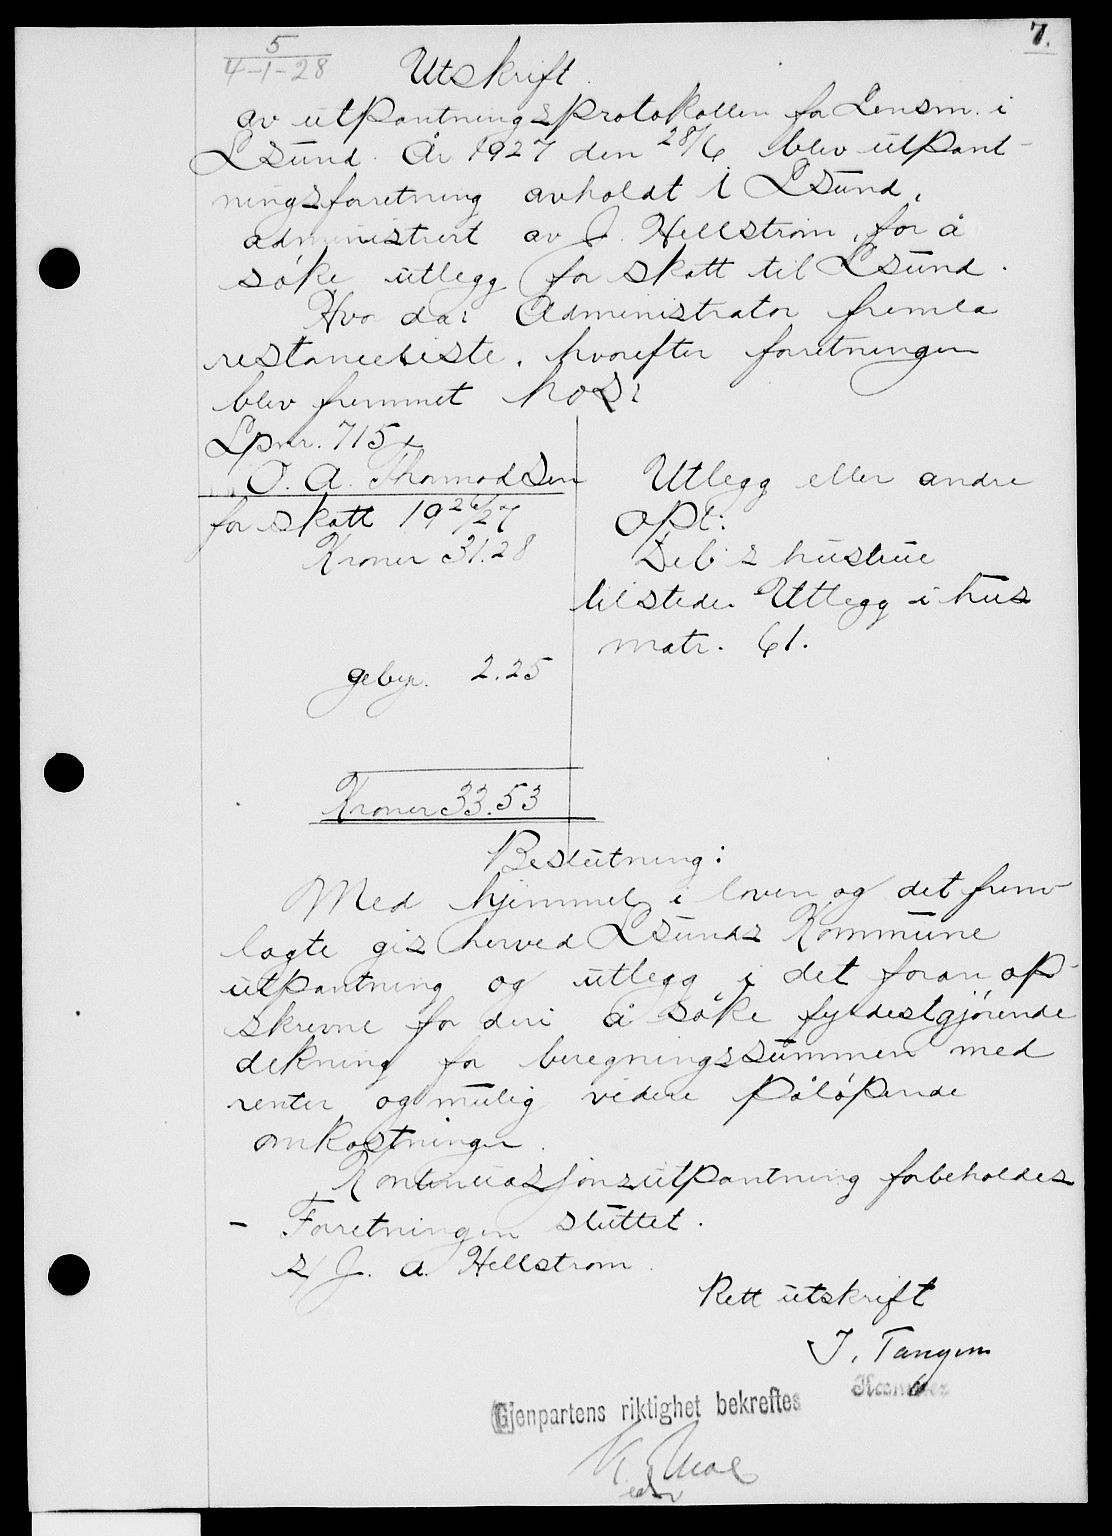 7.
5
4-1-28
Utskrift
av utpantningsprotokollen for Lensm. i
Lsund. År 1927 den 28/6 blev utpant-
ningsforretning avholdt i Lsund,
administrert av J. Hellstrøm, for å
søke utlegg for skatt til Lsund.
Hvor da: Administrator fremla
restanceliste, hvorefter forretningen
blev fremmet hos:
Lpnr. 715
O. A. Thormodsen
for skatt 1926/27
Kroner 31.28
gebyr. 2.25
Kroner 33.53
Utlegg eller andre
opl:
Deb's hustrue
tilstede. Utlegg i hus
matr. 61.
Beslutning:
Med hjemmel i loven og det frem-
lagte gis herved Lsunds Kommune
utpantning og utlegg i det foran op-
skrevne for deri å søke fyldestgjørende
dekning for beregningssummen med
renter og mulig videre påløpende
omkostninger.
Kontinuasjonsutpantning forbeholdes
- Forretningen sluttet.
s/ J. A. Hellstrøm.
Rett utskrift
J. Tangen
Gjenpartens riktighet bekreftes